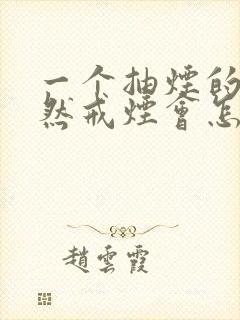 一个抽煙的
然戒煙會怎
趙雲霞